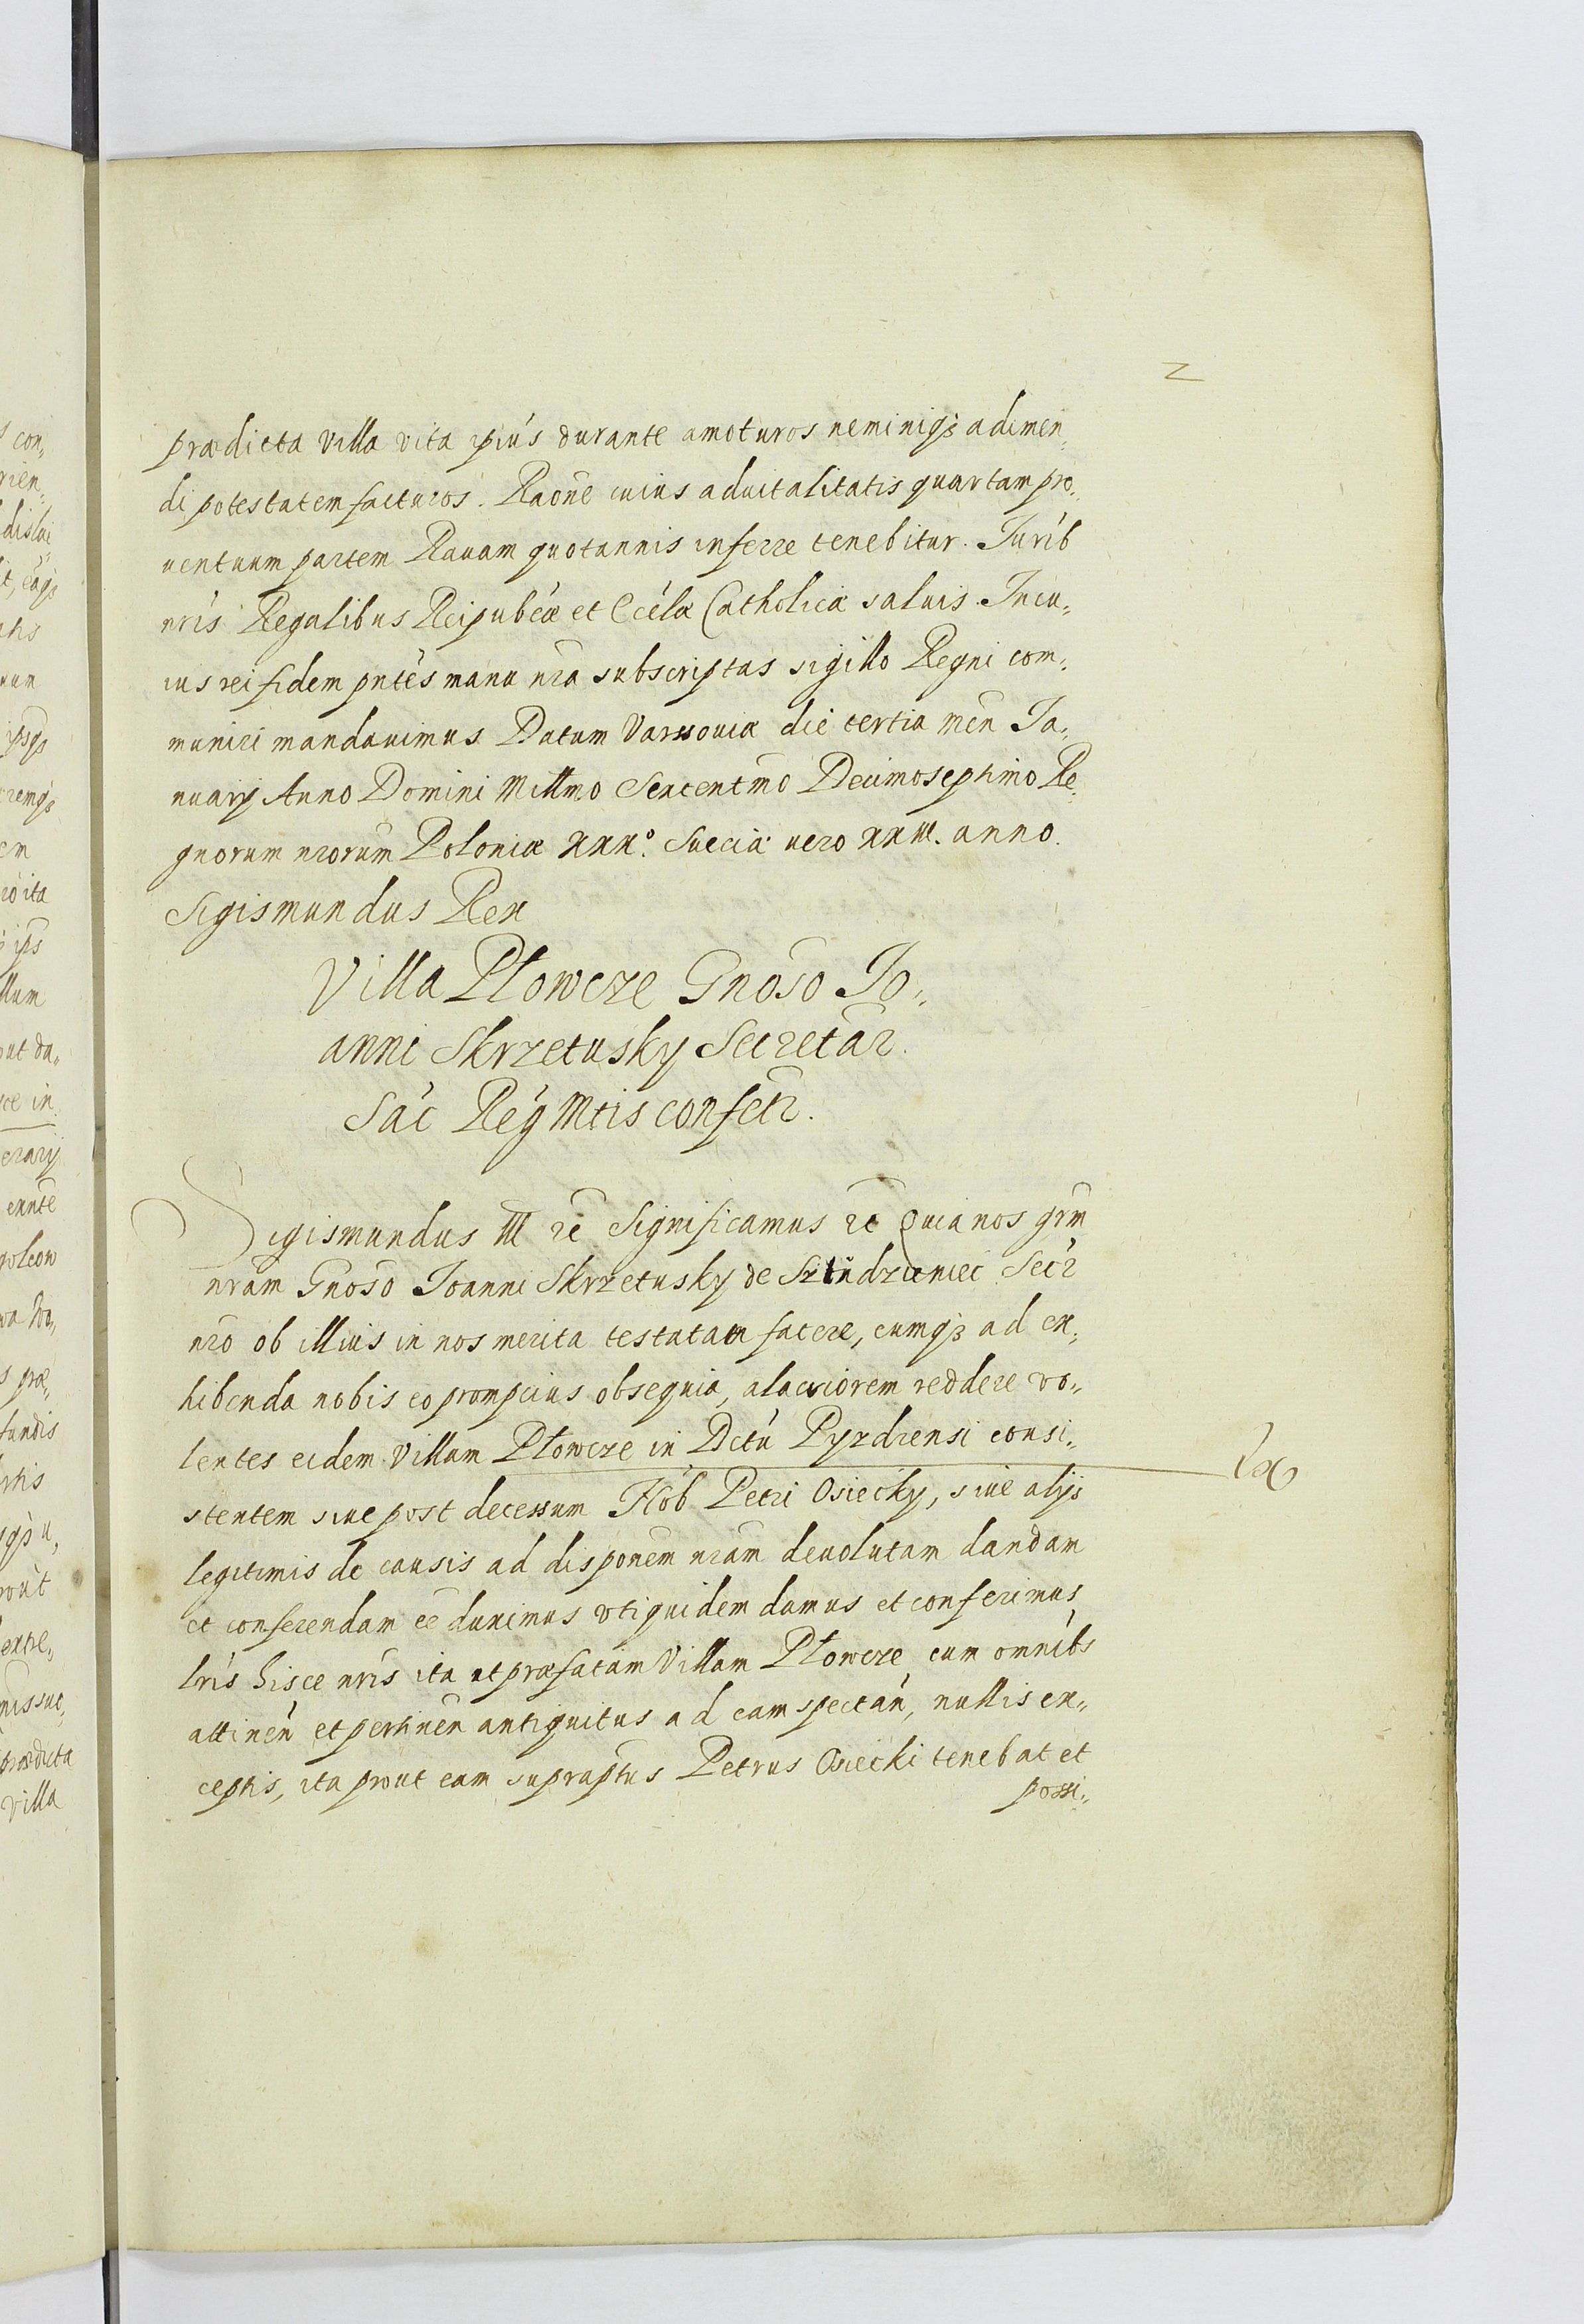 2
prædicta villa vita ipiùs durante amoturos neminiqȝ adimen„
di potestatem facturos. Raone cuius aduitalitatis quartam pro„
uentuum partem Rauam quotannis inferre tenebitur. Jurib
nris Regalibus Reipubcæ et Eccelæ Catholicæ saluis. In cu„
ius rei fidem pntes manu nra subscriptas sigillo Regni com„
muniri mandauimus Datum Varssouiæ die tertia men Ja„
nuarij Anno Domini Millmo Sexcentmo Decimoseptimo Re„
gnorum nrorum Poloniæ xxx°. Sueciæ uero xxiii. anno.
Sigismundus Rex
Villa Płowcze Gnoso Jo„
anni Skrzetusky Secretar.
Sac Reg Mtis confetr.
Sigismundus III etc Significamus etc Quia nos grm
nram Gnoso Joanni Skrzetusky de Secr
nro ob illius in nos merita testatam facere, eumqȝ ad ex„
hibenda nobis eo prompcius obsequia, alacriorem reddere vo„
lentes eidem Villam Płowcze in Dctu Pyzdrensi consi„
stentem siue post decessum Nob Petri Osiecky, siue alijs
legitimis de causis ad disponem nram deuolutam dandam
et conferendam ee duximus vti quidem damus et conferimus
lris hisce nris ita ut præfatam Villam Płowcze cum omnibs
attinen et pertinen antiquitus ad eam spectan, nullis ex„
ceptis, ita prout eam supraptus Petrus Osiecki tenebat et
possi„
con„
rien„
ahs
em
llum
ut da„
ce in
erarij
præ„
fundis
prædicta
villa